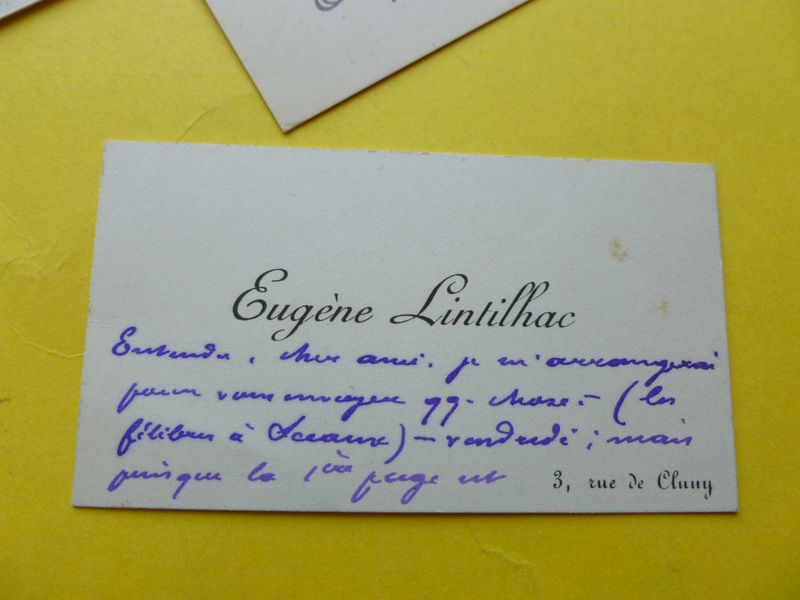 Eugène Lintilhac
Entendu, cher ami, je m'arrangerai
pour vous envoyer qq. chose – (les
félibres à Sceaux) – vendredi ; mais
puisque la 1ère page est
3, rue de Cluny